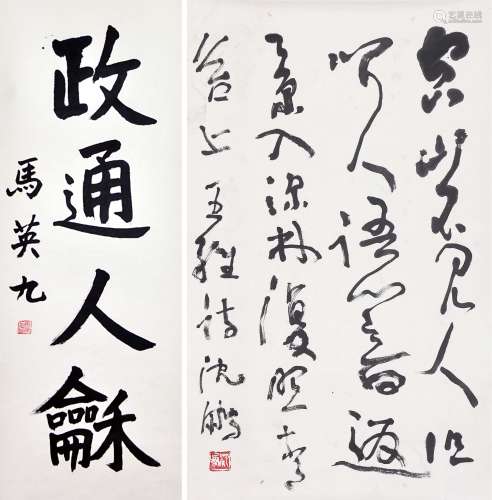 政通人龢
馬英九
空山不見人但
聞人語響返
景入深林復照青
苔上 王維詩 沈鵬